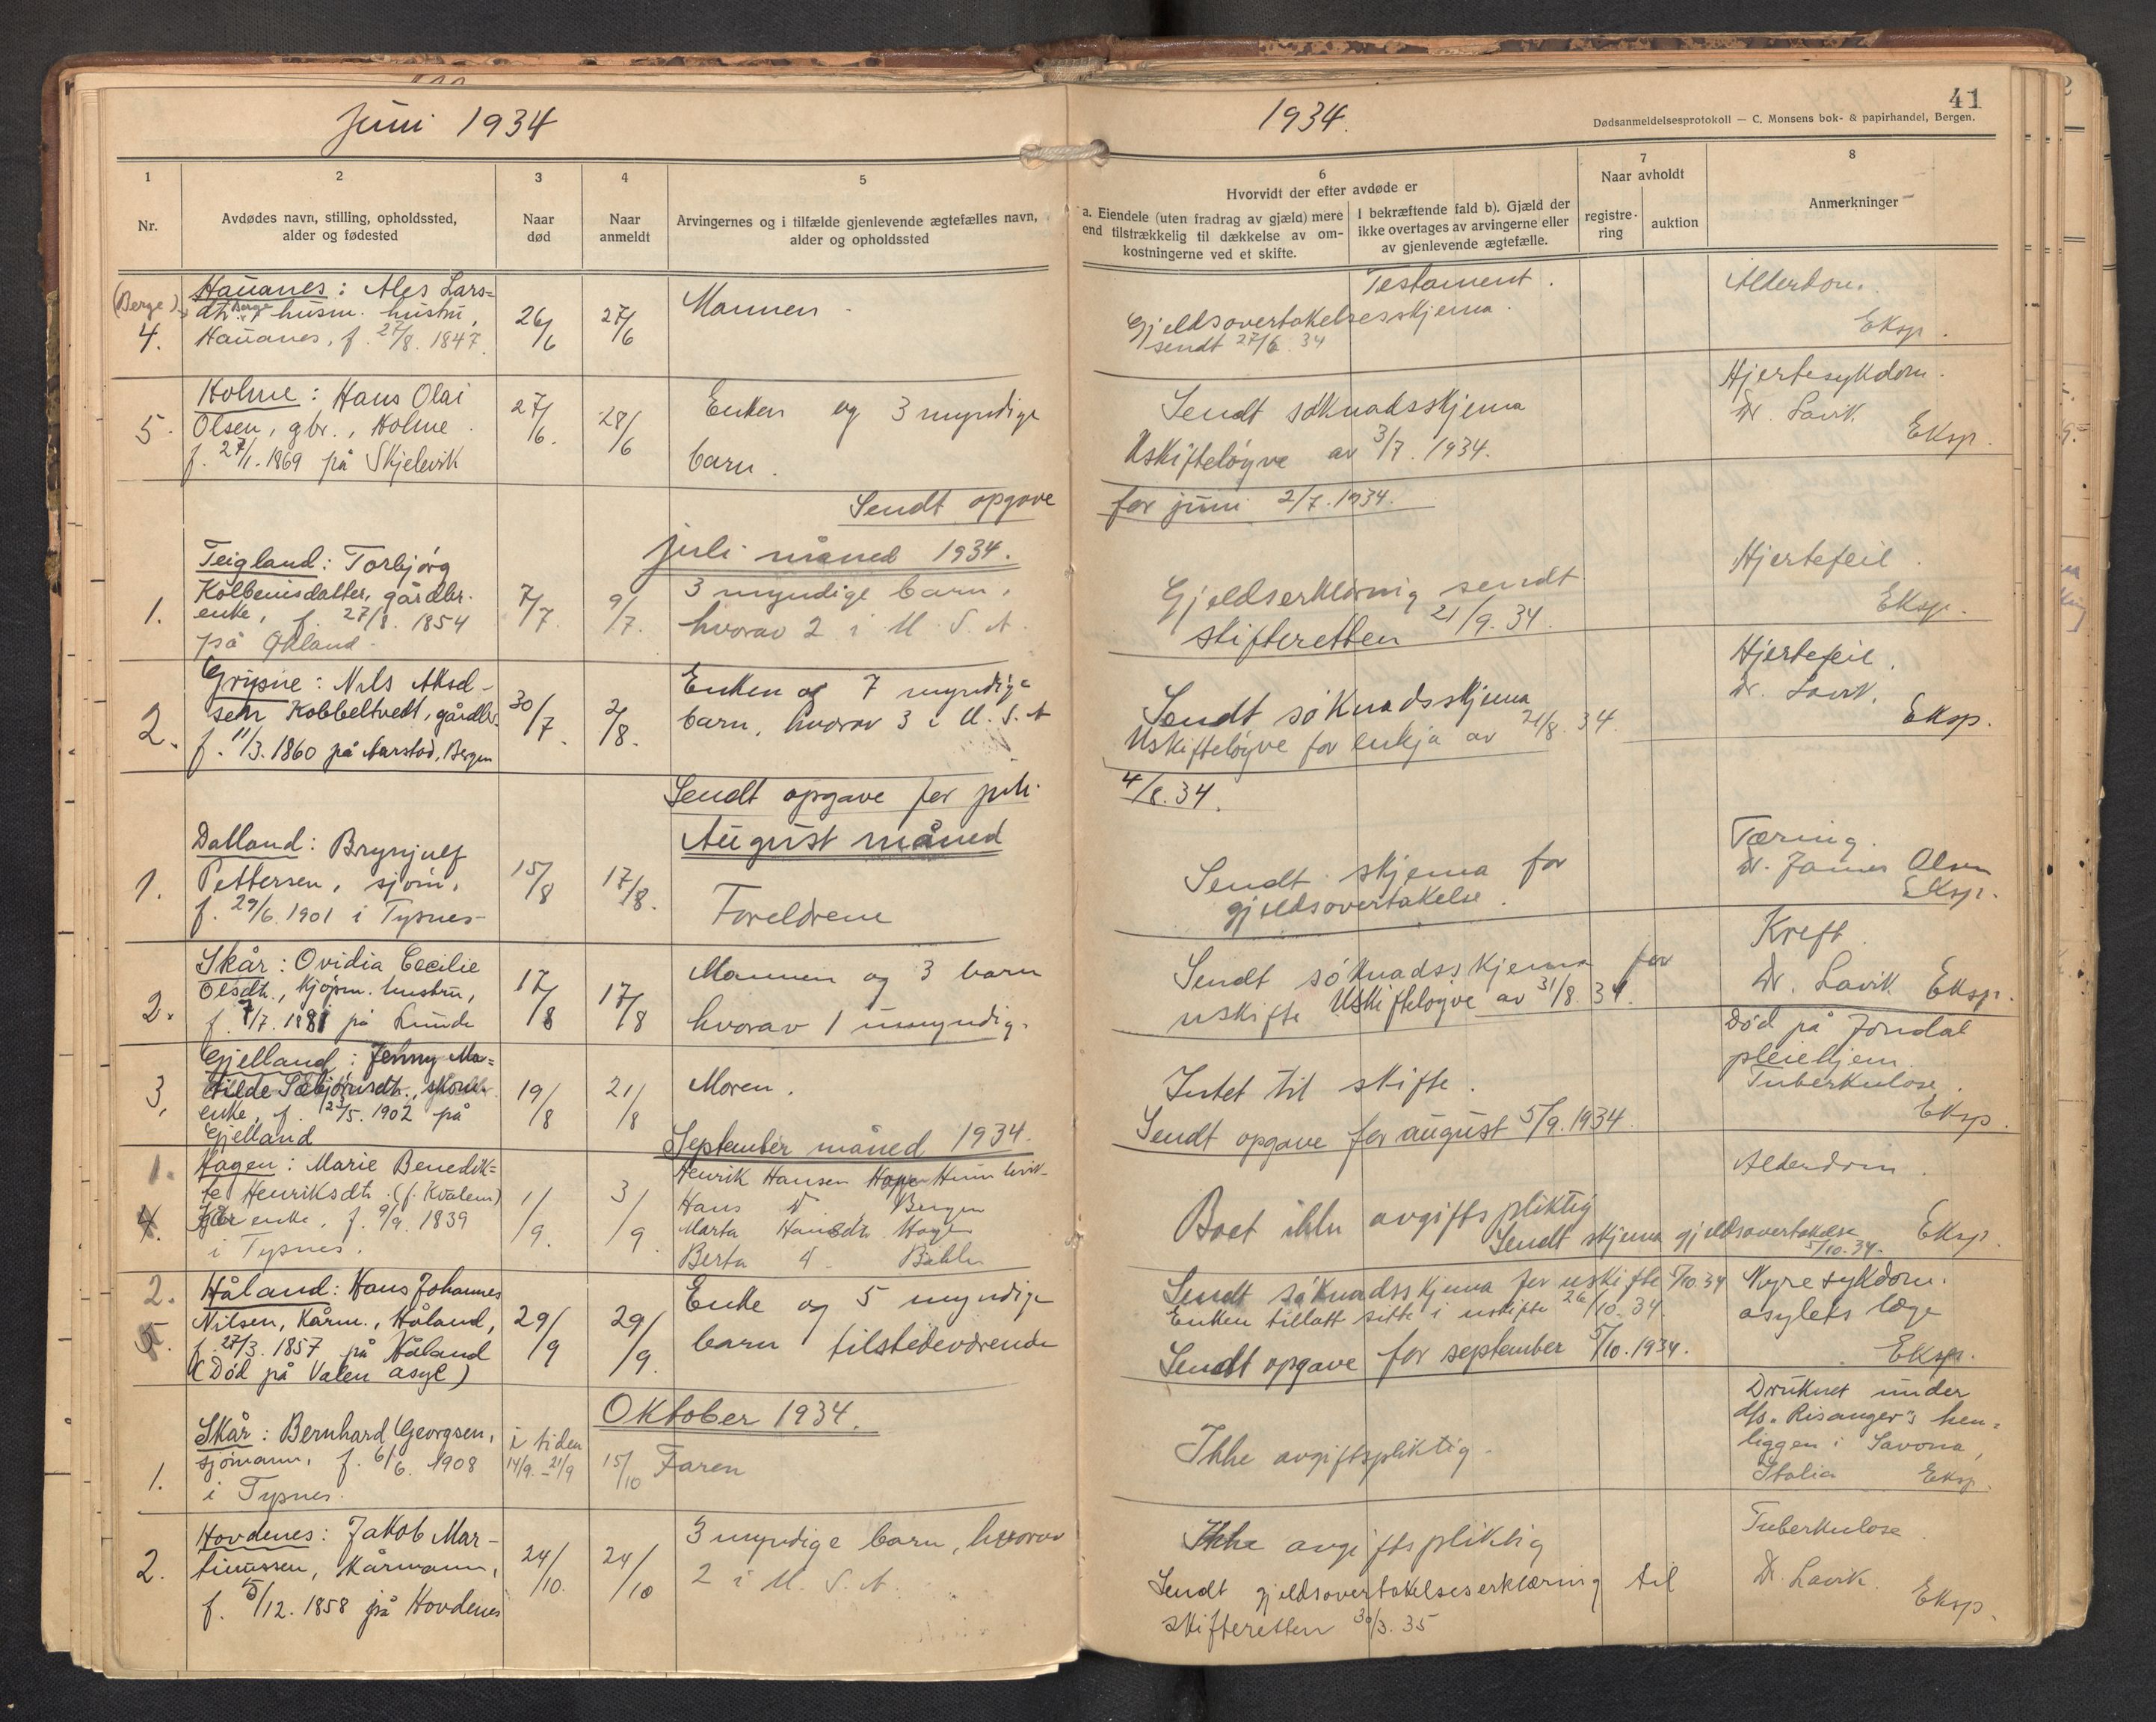 Juni 1934
1934.
41
Dødsanmeldelsesprotokoll — C. Monsens bok- & papirhandel, Bergen.
1
Nr.
2
Avdødes navn, stilling, opholdssted,
alder og fødested
3
Naar
død
4
Naar
anmeldt
5
Arvingernes og i tilfælde gjenlevende ægtefælles navn,
alder og opholdssted
6
Hvorvidt der efter avdøde er
a. Eiendele (uten fradrag av gjæld) mere
end tilstrækkelig til dækkelse av om-
kostningerne ved et skifte.
I bekræftende fald b). Gjæld der
ikke overtages av arvingerne eller
av gjenlevende ægtefælle.
7
Naar avholdt
registre-
ring
auktion
8
Anmerkninger
(Berge)
4.
Hauanes: Ales Lars=
dtr. Berge, husm. hustru,
Hauanes, f. 27/8. 1847.
26/6
27/6
Mannen.
Testament.
Gjeldsovertakelsesskjema.
sendt 27/6. 34
Alderdom.
Eksp.
5.
Holme: Hans Olai
Olsen, gbr., Holme.
f. 27/1. 1869 på Skjelevik
27/6.
28/6
Enken og 3 myndige
barn.
Sendt søknadsskjema
Uskifteløyve av 3/7. 1934.
Hjertesykdom.
Dr. Lavik.
Eksp.
Sendt opgave
for juni 2/7. 1934.
juli måned 1934.
1.
Teigland: Torbjørg
Kolbeinsdatter, gårdbr.
enke, f. 27/8. 1854
på Økland.
7/7.
9/7.
3 myndige barn,
hvorav 2 i U. S. A.
Gjeldserklæring sendt
skifteretten 21/9. 34.
Hjertefeil.
Eksp.
2.
Gripne: Nils Aksel-
sen Kobbeltvedt, gårdbr.
f. 11/3. 1860 på Aarstad, Bergen
30/7.
2/8.
Enken og 7 myndige
barn, hvorav 3 i U. S. A
Sendt søknadsskjema
Uskifteløyve for enkja av 21/8. 34.
Hjertefeil.
Dr. Lavik.
Eksp.
Sendt opgave for juli
4/8. 34.
August måned
1.
Dalland: Brynjulf
Pettersen, sjøm.,
f. 29/6. 1901 i Tysnes-
15/8
17/8.
Foreldrene
Sendt skjema for
gjeldsovertakelse.
Tæring.
Dr. James Olsen
Eksp.
2.
Skår: Ovidia Cecilie
Olsdtr., kjøpm. hustru,
f. 7/7. 1881 på Lunde
17/8
17/8
Mannen og 3 barn
hvorav 1 umyndig.
Sendt søknadsskjema for
uskifte Uskifteløyve av 31/8. 34.
Kreft.
Dr. Lavik Eksp.
3,
Gjelland: Jenny Ma=
tilde Sæbjørnsdtr.,
enke, f. 23/5. 1902 på
Gjelland
19/8
21/8
Moren.
Intet til skifte.
Død på Jondal
pleiehjem.
Tuberkulose.
Eksp.
Sendt opgave for august 5/9. 1934.
September måned 1934.
1.
4.
Hagen: Marie Benedik=
te Henriksdtr. (f. Kvalem)
gbr enke, f. 9/9. 1839
i Tysnes.
1/9.
3/9.
Henrik Hansen
Hans d. Bergen
Marta Hansdtr. Hagen
Berta d.
Boet ikke avgiftspliktig
Sendt skjema gjeldsovertakelse
5/10. 34.
Alderdom.
Eksp.
2.
5.
Håland: Hans Johannes
Nilsen, kårm., Håland,
f. 27/3. 1857 på Håland
(Død på Valen asyl)
29/9
29/9.
Enke og 5 myndige
barn tilstedeværende
Sendt søknadsskjema for uskifte 5/10. 34
Enken tillatt sitte i uskifte 26/10. 34.
Sendt opgave for september 5/10. 1934.
Nyresykdom.
asylets læge
Eksp.
Oktober 1934.
1.
Skår: Bernhard Georgsen,
sjømann, f. 6/6. 1908
i Tysnes.
i tiden
14/9. - 21/9
15/10
Faren
Ikke avgiftspliktig.
Druknet under
d/s. "Risanger"s hen=
liggen i Savona,
Italia Eksp.
2.
Hovdenes: Jakob Mar-
tinussen, kårmann,
f. 5/12. 1858 på Hovdenes
24/10.
24/10
3 myndige barn, hvorav
2 i U. S. A.
Ikke avgiftspliktig
Sendt gjeldsovertakelseserklæring til
skifteretten 30/3. 35
Tuberkulose
Dr. Lavik.
Eksp.